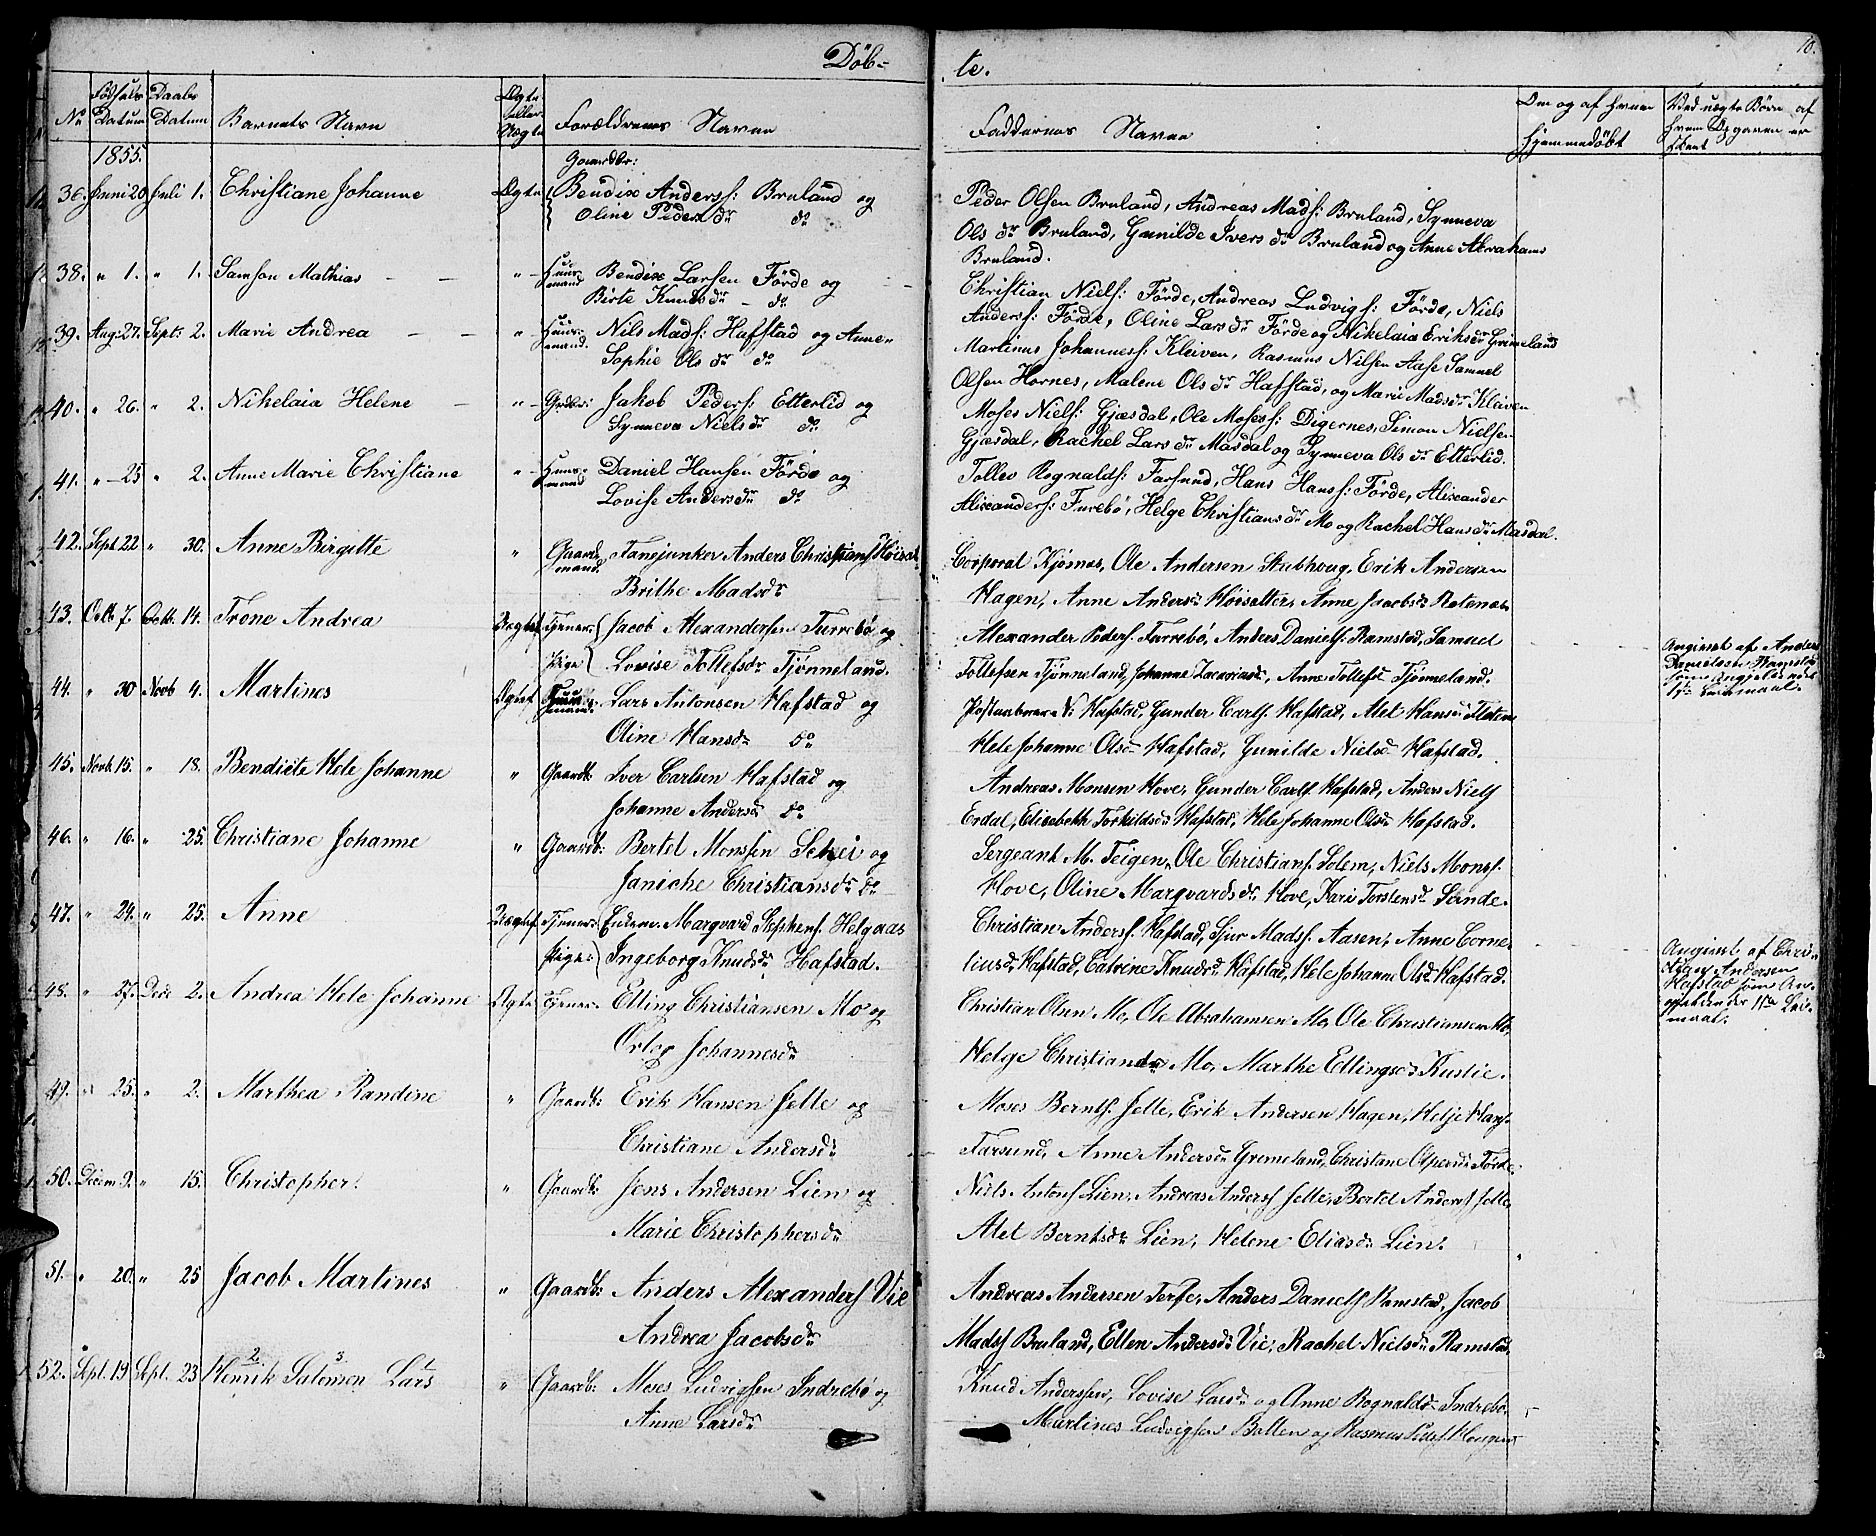 Döb-
te.
10.
No Fødsels Datum Daabs Datum Barnets Navn Ægte eller Uægte Forældrenes Navne
Faddernes Navne Om og af hvem hjemmedøbt Ved uægte Børn af hvem Opgaven er skeet
1855.
36. Juni 20 Juli 1. Christiane Johanne Ægte Gaardbr: Bendix Anderss: Bruland og
Oline Peders dr do
Peder Olsen Bruland, Andreas Mads: Bruland, Synneva
Ols dr Bruland, Gunilde Ivers dr Bruland og Anne Abrahams
Bruland.
38. " 1. " 1. Samson Mathias " Huusmand Bendix Larsen Förde og
Birte Knuds dr - do
Christian Niels: Förde, Andreas Ludvigs: Förde, Niels
Anders: Förde, Oline Lars dr Förde og Nikelaia Eriks dr Grimeland
39. Aug: 27. Sept: 2. Marie Andrea " Huusmand. Nils Mads: Hafstad og Anne
Sophie Ols dr do
Martinus Johanness: Kleiven, Rasmus Nilsen Aase Samuel
Olsen Hornes, Malene Ols dr Hafstad, og Marie Mads dr Kleiven
40. " 26. " 2. Nikelaia Helene " Grdbr: Jakob Peders: Etterlid og
Synneva Niels dr do
Moses Niels: Gjæsdal, Ole Moses: Digernes, Simon Nielsen
Gjæsdal, Rachel Lars dr Masdal og Synneva Ols dr Etterlid.
41. " 25 " 2. Anne Marie Christiane " Huusmand Daniel Hansen Förde og
Lovise Anders dr do
Tollev Rognalds: Farsund, Hans Hans: Förde, Alixander
Alixanders: Furebö, Helge Christians dr Mo og Rachel Hans dr Masdal.
42. Sept 22 " 30. Anne Birgitte " Gaardmand. Fanejunker Anders Christians
Brithe Madsdr
Corporal Kjörnes, Ole Andersen Stubhoug, Erik Andersen
Hagen, Anne Andersdr Höisetter, Anne Jacobsdr
43. Octb 7. Octb. 14. Trone Andrea Uægte Tjener Jacob Alexandersen Furrebö og
Pige Lovise Tollefsdr Tjönneland.
Alexander Peders: Furrebö, Anders Daniels: Ramstad, Samuel
Tollefsen Tjönneland, Johanne Zacariasdr, Anne Tollefsd Tjönneland.
Angivet af Anders
Danielsen Ramstad
som Angjeldendes
1ste Leiermaal.
44. " 30 Novb 4. Martines Ægte Huusmand. Lars Antonsen Hafstad og
Oline Hansdr do
N: Hafstad, Gunder Carls. Hafstad, Alet Hansdr
Hele Johanne Olsdr Hafstad, Gunilde Nielsdr Hafstad.
45. Novb. 15. " 18. Bendicte Hele Johanne " Gaardb: Iver Carlsen Hafstad og
Johanne Andersdr do
Andreas Monsen Hove, Gunder Carls Hafstad, Anders Niels
Erdal, Elisabeth Torkildsdr Hafstad, Hele Johanne Olsdr Hafstad.
46. " 16. " 25. Christiane Johanne " Gaardb: Bertel Monssen Schei og
Janiche Christiansdr do
Sergeant M. Teigen, Ole Christians. Solem, Niels Monss.
Hove, Oline Marqvardsdr Hove, Kari Torstensdr Sande.
47. " 24. " 25. Anne Uægte Tjener Marqvard Stephens. Helgaas
Pige Ingeborg Knudsdr Hafstad.
Christian Anders. Hafstad, Sjur Mads. Aasen, Anne Corne-
liusd. Hafstad, Catrine Knudsd. Hafstad, Hele Johanne Olsd Hafstad.
Angivet af Chri-
stian Andersen
Hafstad som An-
gjeldendes 1ste Leier-
maal.
48. " 27. Dece 2. Andrea Hele Johanne Ægte Tjener Elling Christiansen Mo og
Johannesdr
Christian Olsen Mo, Ole Abrahamsen Mo, Ole Christiansen Mo,
Helge Christiansdr Mo, Marthe Ellingsdr
49. " 25. " 2. Marthea Randine " Gaardb: Erik Hansen Jelle og
Christiane Andersdr
Moses Bernts. Jelle, Erik Andersen Hagen, Helje Hans.
Farsund, Anne Andersdr Gremeland, Christane Förde.
50. Decem 9. " 15. Christopher. " Gaardb: Jens Andersen Lien og
Marie Christophersdr
Niels Antons Lien, Andreas Anders Jelle, Bertel Anders Jelle,
Alet Berntsdr Lien, Helene Eliasdr Lien.
51. " 20. " 25 Jacob Martines " Gaardb: Anders Alexanders Vie
Andrea Jacobsdr
Andreas Andersen Anders Daniels Ramstad, Jacob
Madss Bruland, Ellen Andersdr Vie, Rachel Nielsdr Ramstad.
52. Sept. 19 Sept. 23 Henrik Salomon Lars " Gaardb: Moses Ludvigsen Indrebö og
2 3 1
Anne Larsdr
Knud Anderssen, Lovise Larsdr og Anne Rognaldsdr Indrebö
Martines Ludvigsen Bolten og Rasmus